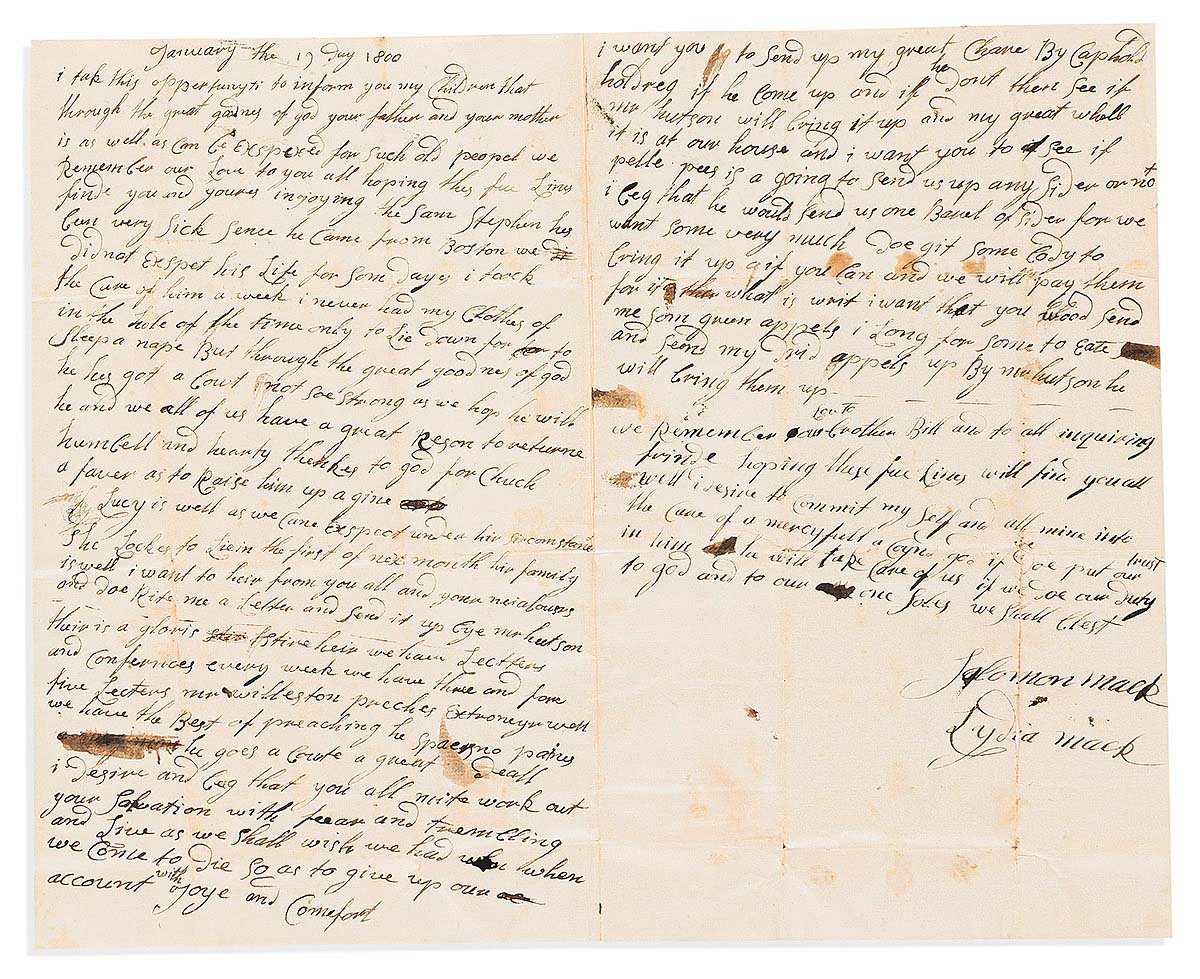 January the 19 Day 1800
i tak this oppertunyti to inform you my Children that
through the great godnes of god your father and your mother
is as well as Can be Exspexed for such old peopel we
Remember our Love to you all hoping thes fue Lines
finde you and yours injoying the Sam Stephen hes
ben very Sick Sence he Came from Boston we
did not Exspet his Life for Som Days i took
the Care of him a week i never had my Clothes of
in the hole of the time only to Lie Down for to
Sleep a nape But through the great goodnes of god
he hes got a bout not Soe Strong as we hop he will
he and we all of us have a great Reson to returne
humbell and hearty thenkes to god for Chuch
a faver as to Raise him up a gine
Lucy is well as we Cane Exspect under hir Sircomstane
She Lockes to Liein the first of nex month hir family
is well i want to heir from you all and your neialours
and Doe Rite me a Letter and Send it up bye mr hutson
their is a gloris Stire heir we have Lectters
and Confernces every week we have three and fore
five Lecters mr willeston preches Extroneyr well
we have the Best of preaching he Spaers no paines
he goes a boute a great Deall
i desire and beg that you all mite work out
your Salvation with fear and trembling
and Live as we Shall wish we had when
we Come to Die So as to give up our
account with Joye and Comefort
i want you to Send up my great Chare By Cap
holdreg if he Come up and if he Dont then See if
mr hutson will bring it up and my great whell
it is at our house and i want you to See if
pelle pees is a going to Send us up any Sider or not
i beg that he would Send us one Barel of Sider for we
want Some very much Doe git Some body to
bring it up if you Can and we will pay them
for it what is writ i want that you wood Send
me Som green appels i Long for Some to Eate
and Send my Drid appels up By mr hutson he
will bring them up
we Remember our Lov to brother Bill and to all inquiring
frinds hoping these fue Lines will find you all
well i desire to Commit my Self and all mine into
the Care of a mercyfull god if we Doe put our trust
in him he will take Care of us if we Doe our Duty
to god and to our one Soles we Shall blest
Solomon mack
Lydia mack